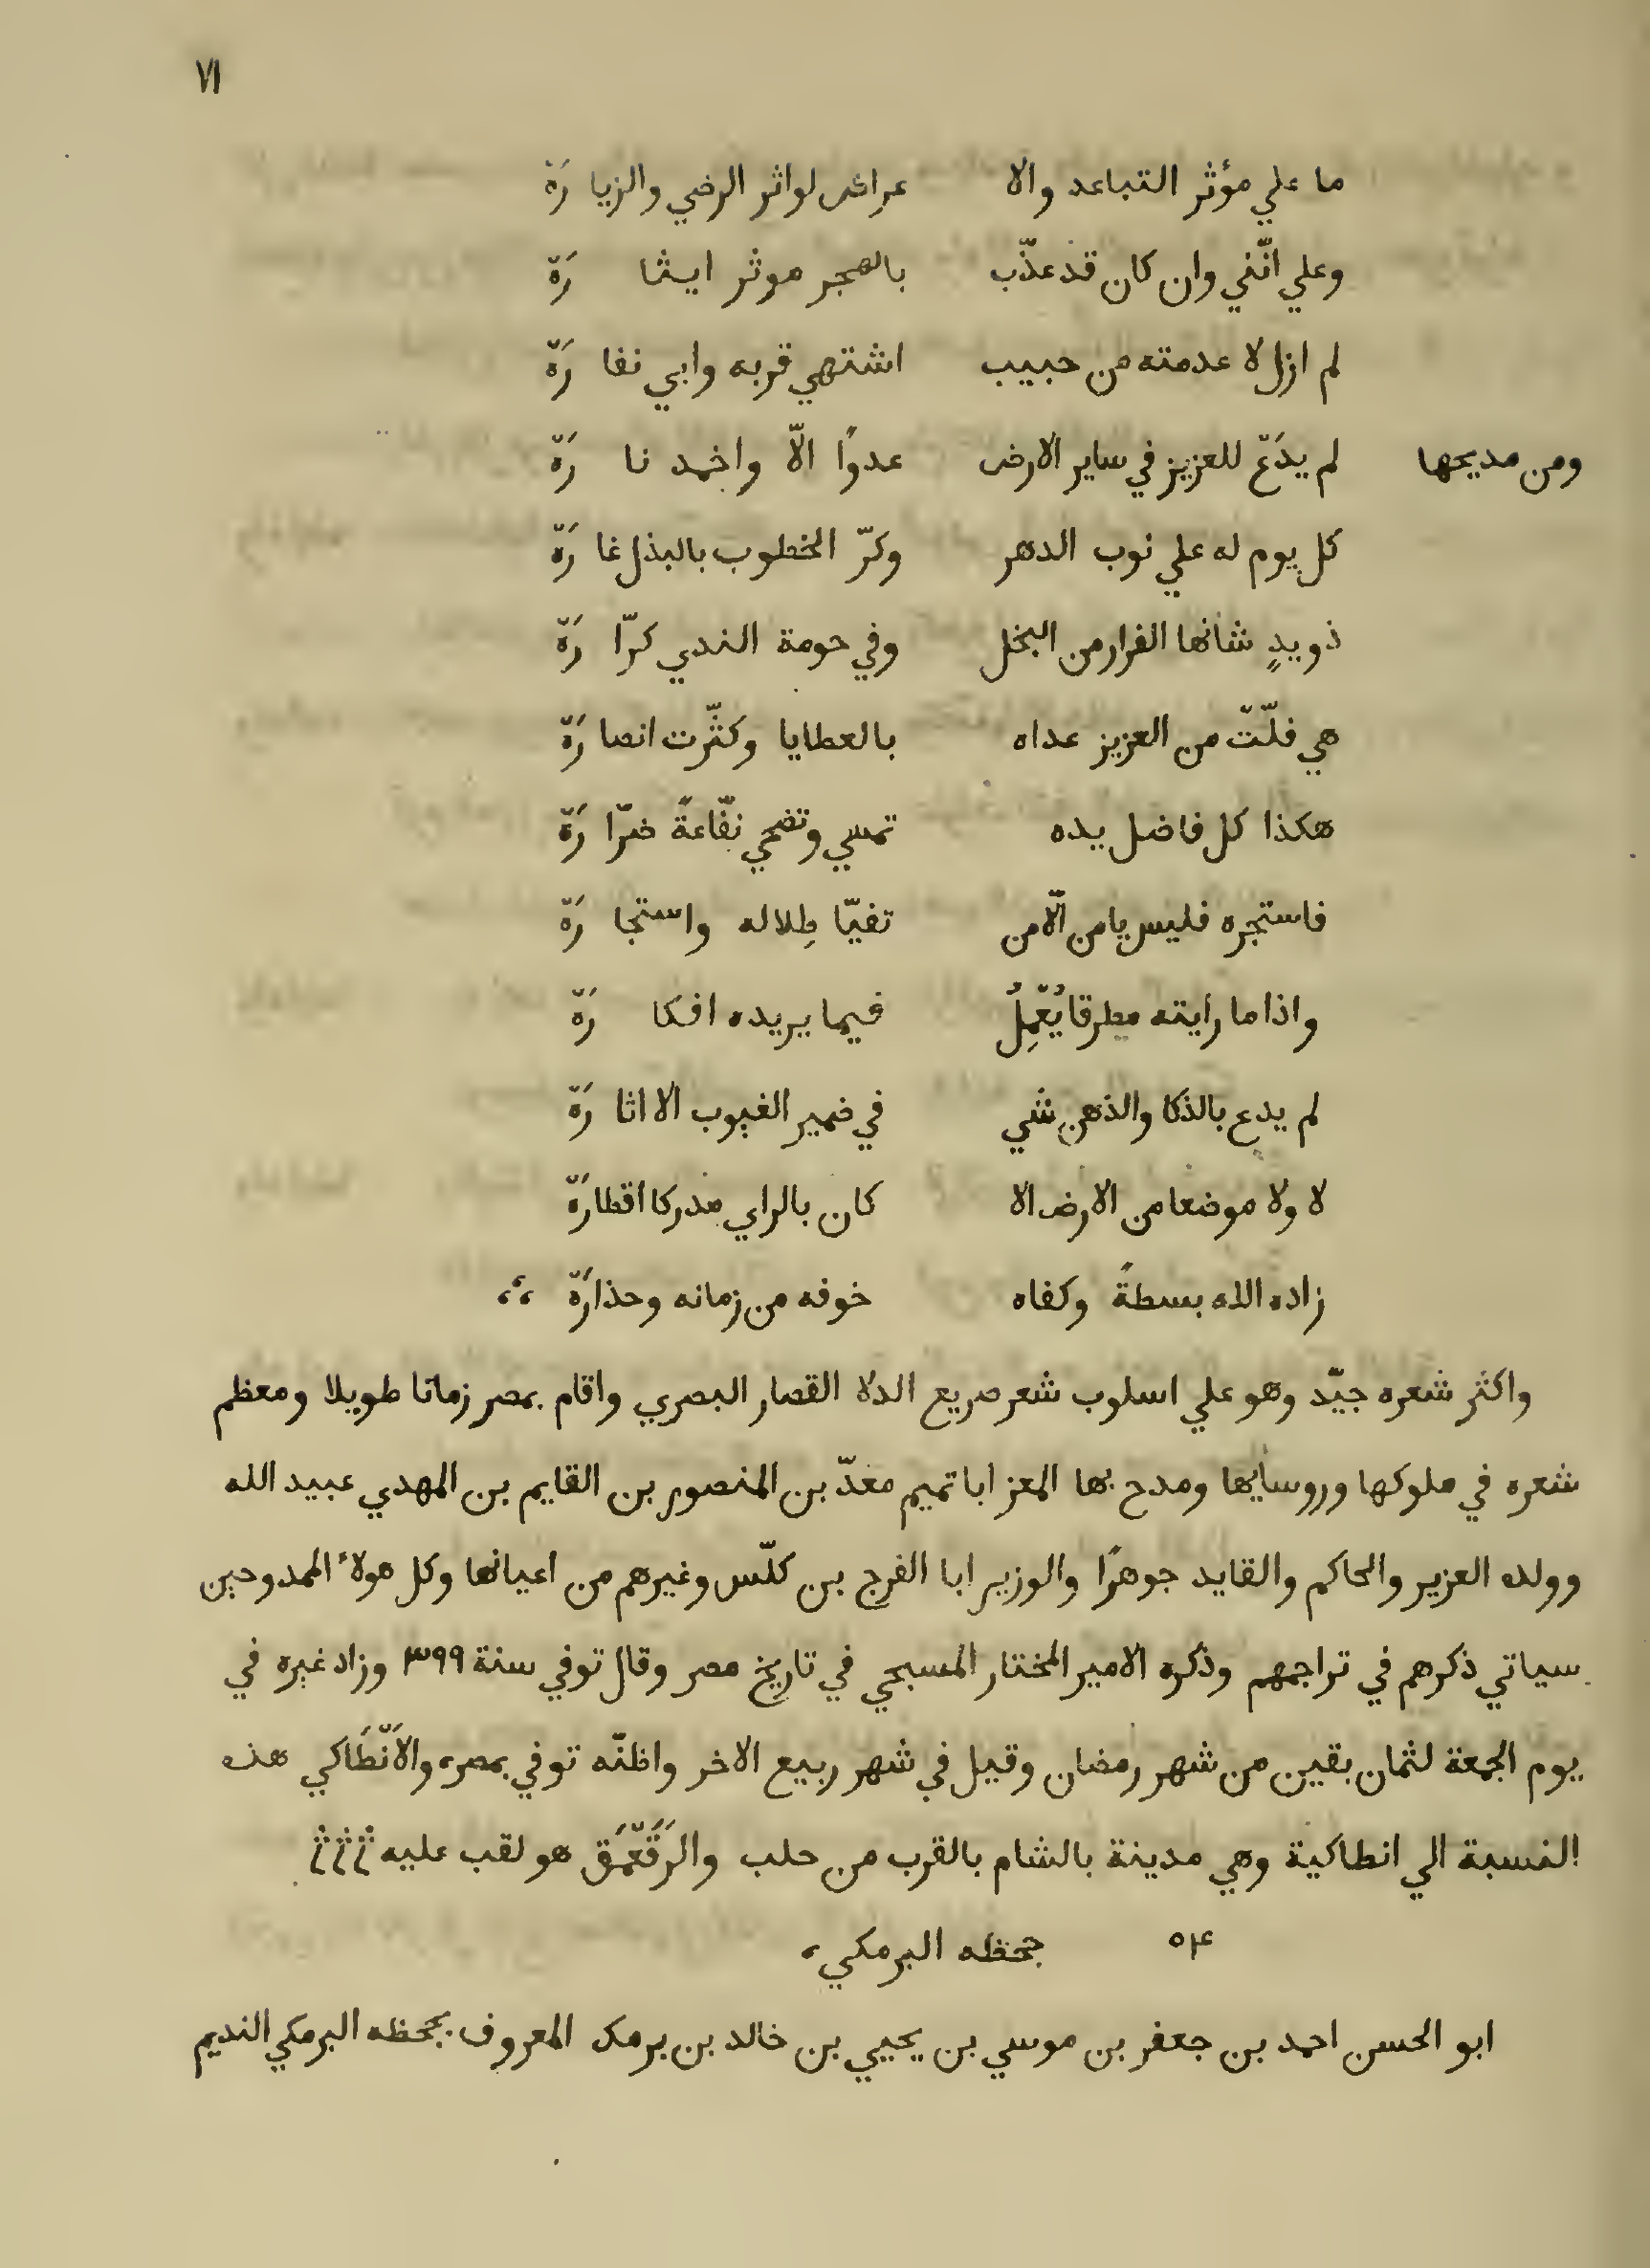 ٧١
ما علي مؤثر التباعد والا عراض لواثر الرضي والزيا رَهْ
وعلي انّني وان كان قد عذّب بالهجر موثر ايثا رَهْ
لم ازل لا عدمته من حبيب اشتهي قربه وابي نفا رَهْ
ومن مديحها لم يدَعْ للعزيز في ساير الارض عدوًا الّا واخمد نا رَهْ
كل يوم له علي نوب الدهر وكرّ الخطوب بالبذل غا رَهْ
ذو يدٍ شانها الفرار من البخل وفي حومة الندي كرّا رَهْ
هي فلّتْ من العزيز عداه بالعطايا وكثّرت انصا رَهْ
هكذا كل فاضل يده تمسي وتضحي نفّاعةً ضرّا رَهْ
فاستجره فليس يامن الّا من تفيّا ظِلاله واستجا رَهْ
واذا ما رايته مطرقا يُعْمِلُ فيما يريده افكا رَهْ
لم يدع بالذكا والذهن شي في ضمير الغيوب الا اثا رَهْ
لا ولا موضعا من الارض الا كان بالراي مدركا اقطارَهْ
زاده الله بسطةً وكفاه خوفه من زمانه وحذارَهْ ،،،
واكثر شعره جيّد وهو علي اسلوب شعر صريع الدلا القصار البصري واقام بمصر زمانا طويلا ومعظم
شعره في ملوكها وروسايها ومدح بها المعز ابا تميم معدّ بن المنصور بن القايم بن المهدي عبيد الله
وولده العزيز والحاكم والقايد جوهرًا والوزير ابا الفرج بن كلّس وغيرهم من اعيانها وكل هولاء الممدوحين
سياتي ذكرهم في تراجمهم وذكره الامير المختار المسبحي في تاريخ مصر وقال توفي سنة ٣٩٩ وزاد غيره في
يوم الجمعة لثمان بقين من شهر رمضان وقيل في شهر ربيع الاخر واظنّه توفي بمصر، والاَنْطَاكي هذه
النسبة الي انطاكية وهي مدينة بالشام بالقرب من حلب والرَقَعْمَق هو لقب عليه
٥٤ جحظه البرمكي،
ابو الحسن احمد بن جعفر بن موسي بن يحيي بن خالد بن برمك المعروف بجحظه البرمكي النديم